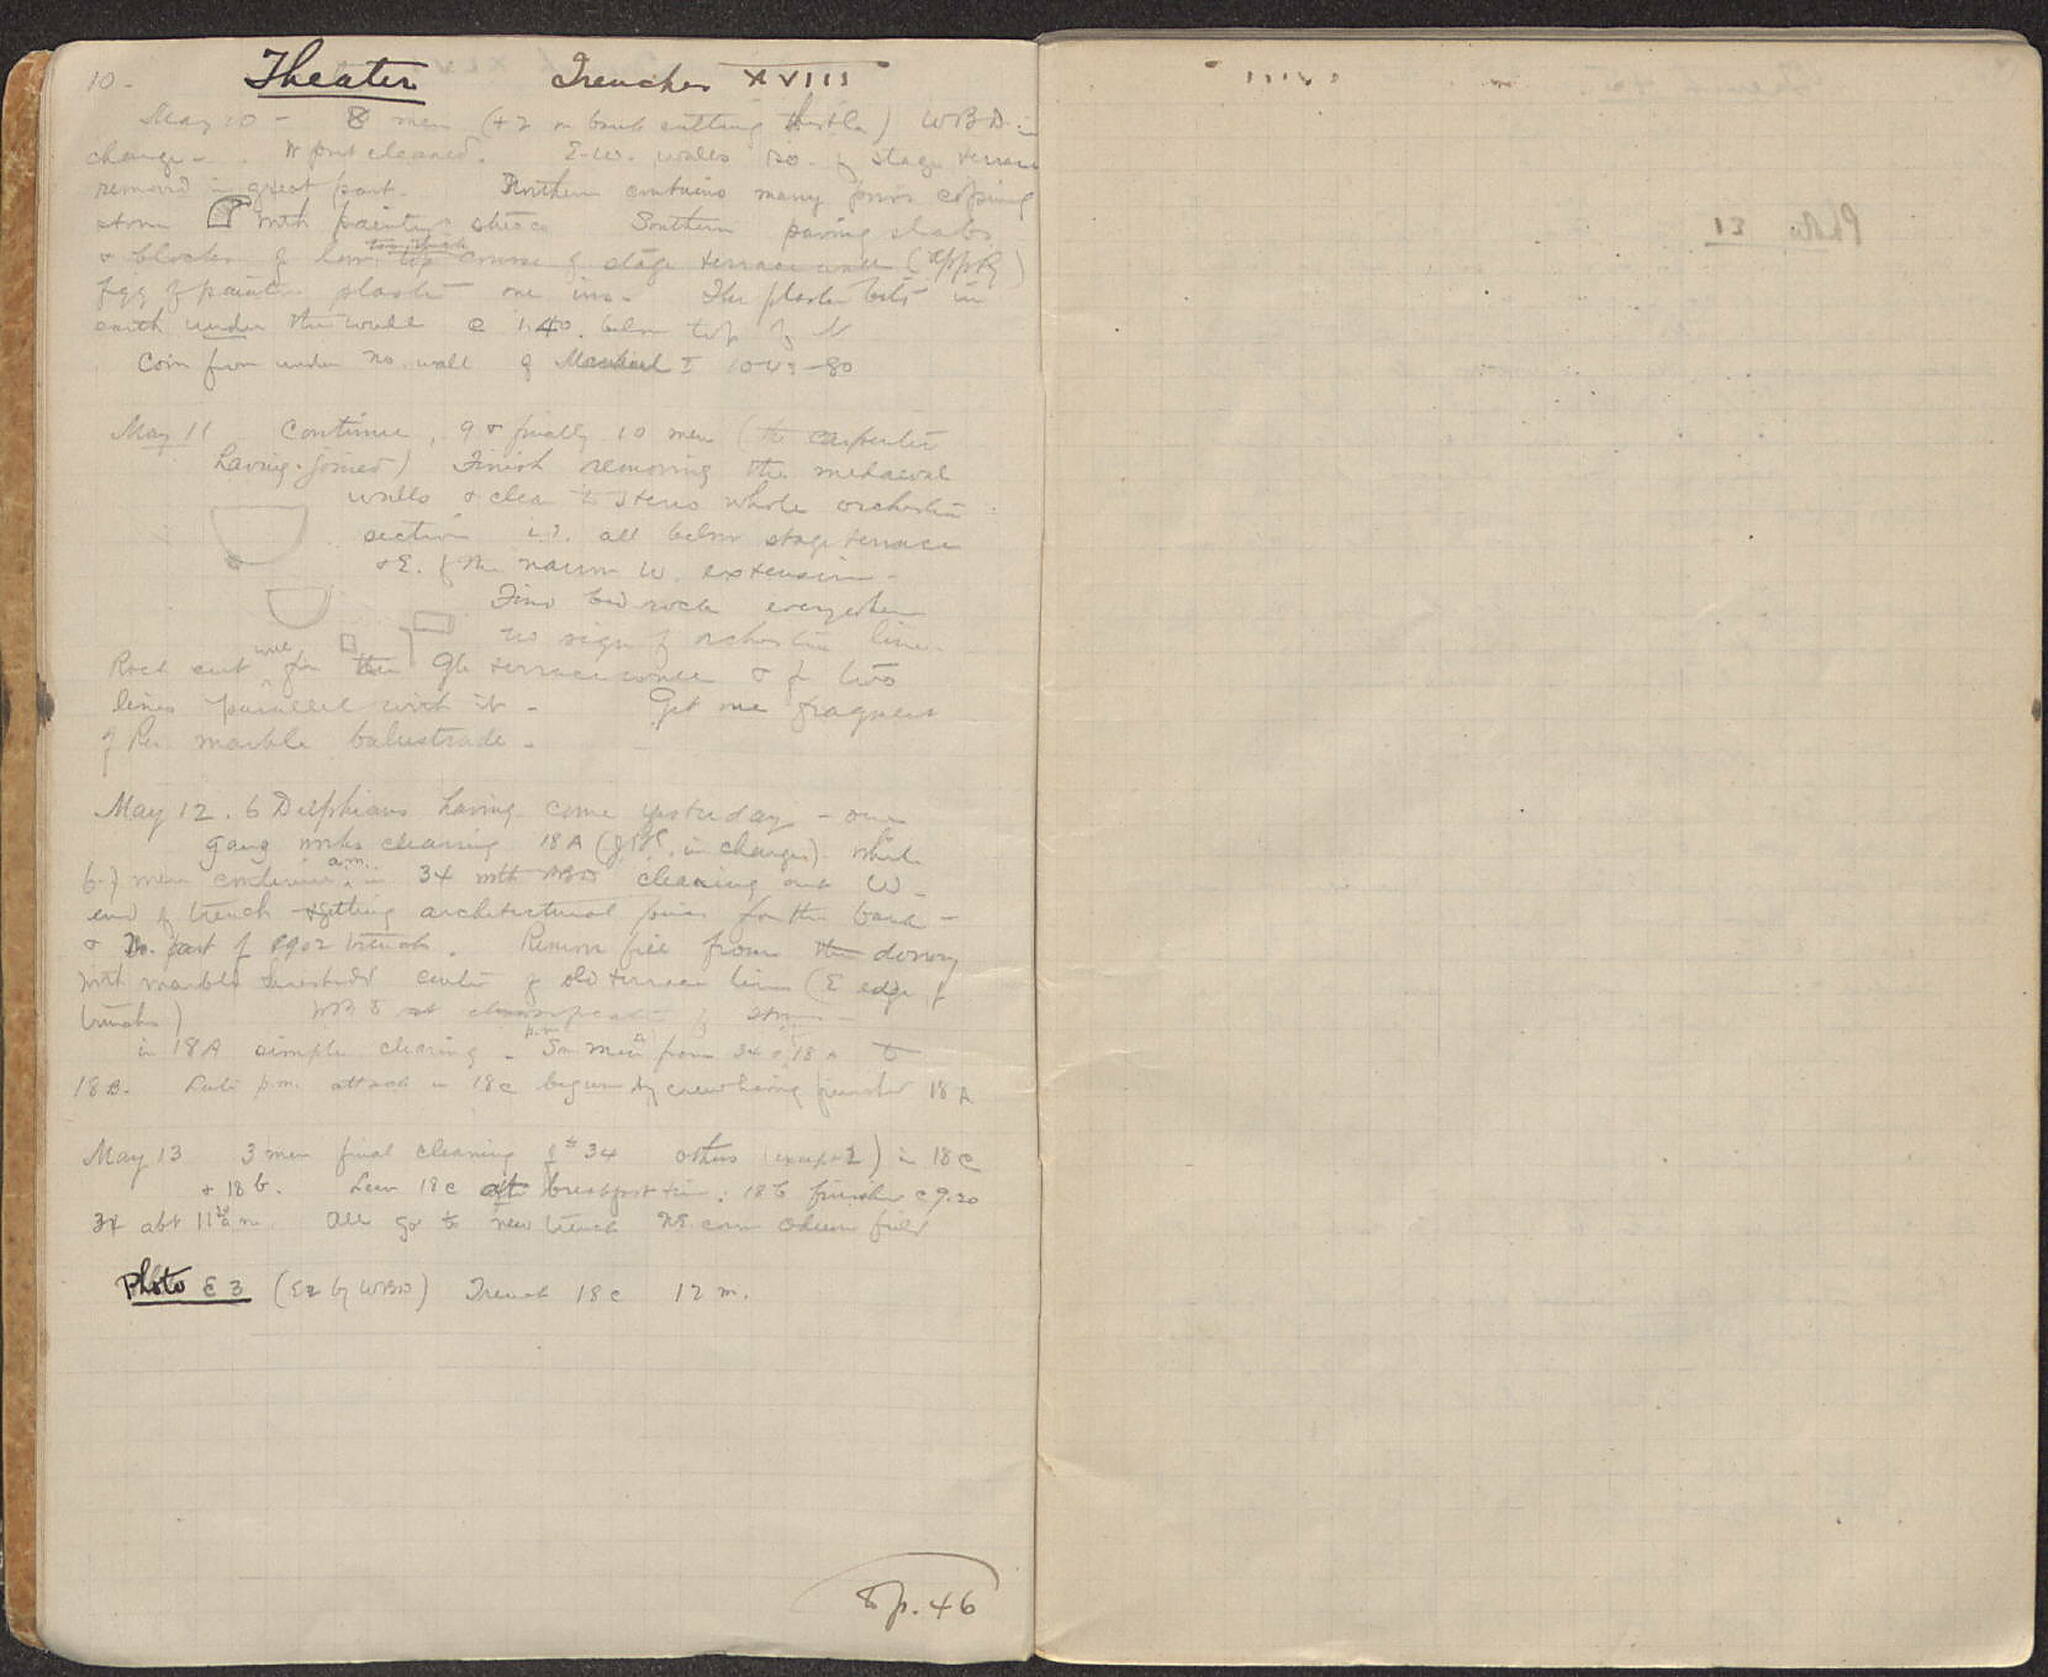 10 - Theater Trenches XVIII
May 10 - 8 men (+ 2 on bank cutting thistle) WBD in
charge - . W part cleaned. E-W. walls so. of stage terrace
removed in great part. Northern contains many poros coping
stones with painted stucco Southern paving slabs
& blocks of low course of stage terrace wall (
of painted plaster one ins. The plaster bits in
earth under the wall c 1.40 below top of it
Coin from under no. wall of Michael I
May 11 Continue, 9 & finally 10 men (the carpenter
having joined) Finish removing the mediaeval
walls & clear to stereo whole orchestra
section i.e. all below stage terrace
& E. of the narrow W. extension -
Find bed rock everywhere
no sign of orchestra line.
Rock cut for the Gk terrace wall & of two
lines parallel with it - Get one fragment
of marble balustrade -
May 12. 6 Delphians having come yesterday - one
gang works cleaning 18A ( in charge) while
6-7 men continue a.m. in 34 with WBD cleaning out W -
end of trench & getting architectural pieces for the bank -
& No. part of 1902 trench. Remove fill from the doorway
with marble threshold center of old terrace line (E edge of
trench) WBD at of stones -
in 18A simple clearing - p.m. men from 34 & 18A to
18B. Late p.m. attack in 18C begun by crew having finished 18A
May 13 3 men final cleaning of 34 others (except 2) in 18C
& 18b. Leave 18C at breakfast time. 18b finished c 9.20
34 abt 11 a.m. All go to new trench NE. corn Odeum field
Photo E3 (E2 by WBD) Trench 18C 12 m.
p. 46